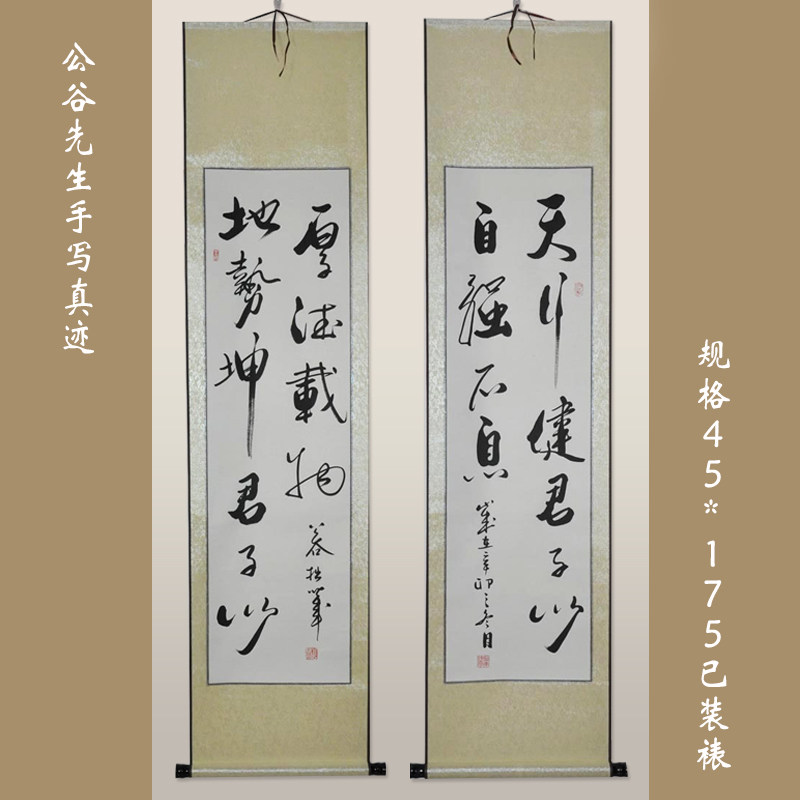 公谷先生手写真迹
天行健君子以
自强不息
歲在辛卯之冬月
地勢坤君子以
厚德載物
谷拙筆
规格45*175已装裱